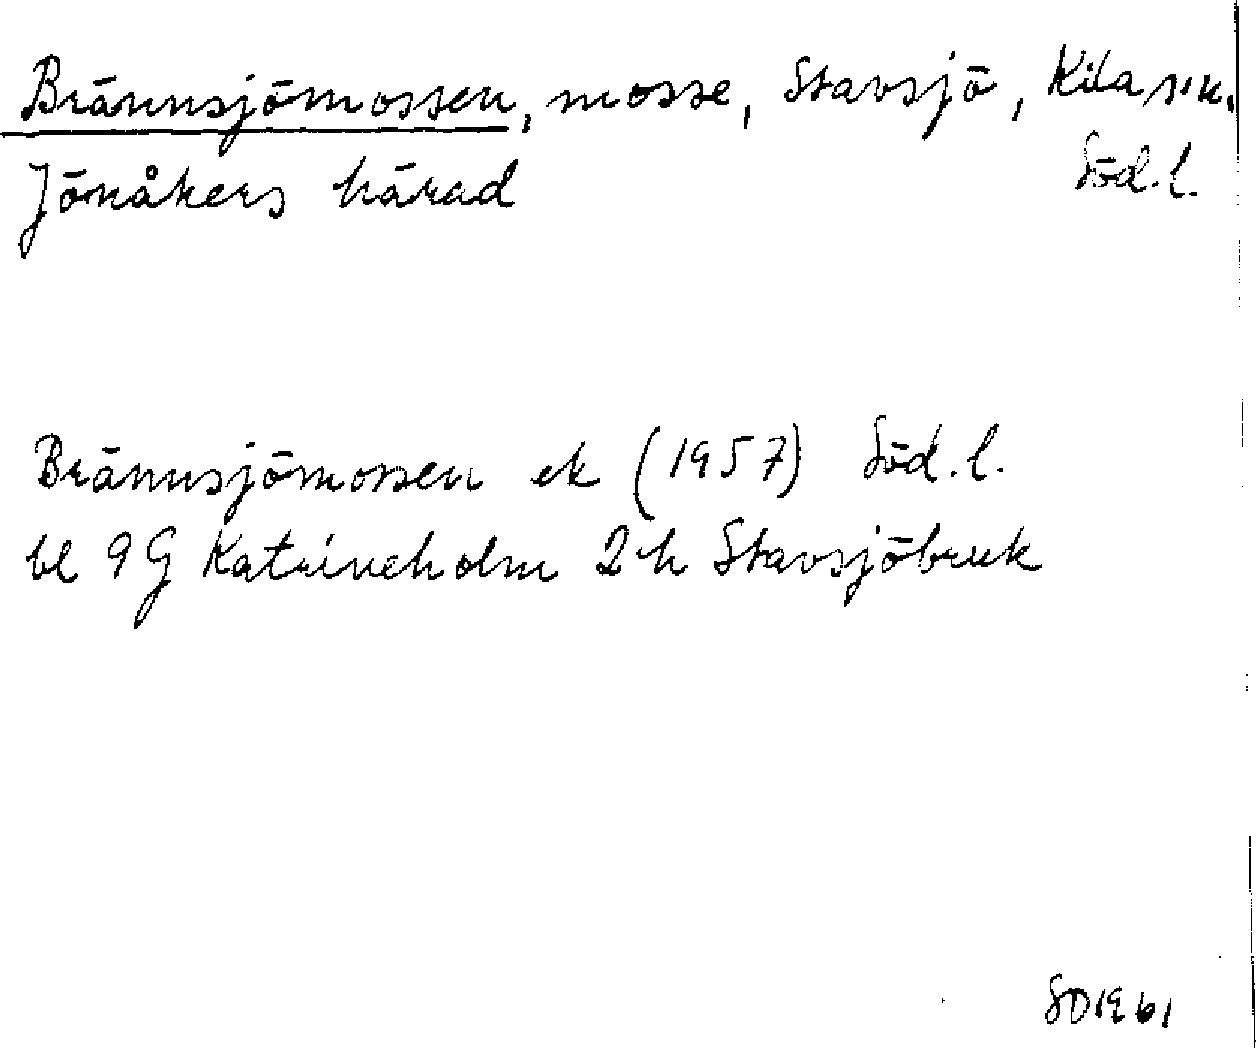 Brännsjömossen, mosse, Stavsjö, Kila sn.
Jönåkers härad Söd.l.
Brännsjömossen ek (1957) Söd.l.
bl 9G Katrineholm 2h Stavsjöbruk
SD1961